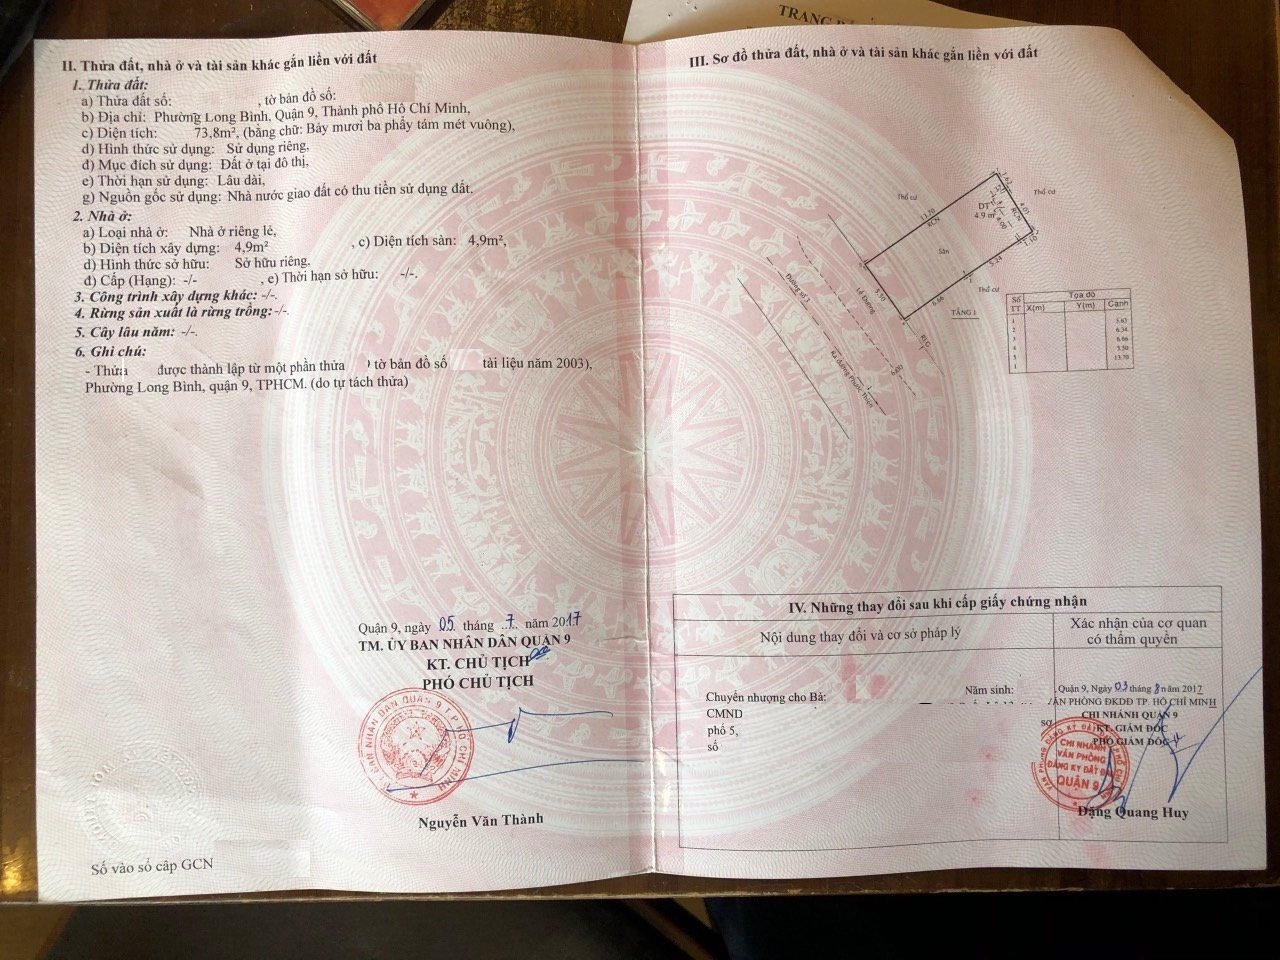 TRANG B
II. Thửa đất, nhà ở và tài sản khác gắn liền với đất
1. Thửa đất:
a) Thửa đất số: , tờ bản đồ số:
b) Địa chỉ: Phường Long Bình, Quận 9, Thành phố Hồ Chí Minh,
c) Diện tích: 73,8m², (bằng chữ: Bảy mươi ba phẩy tám mét vuông),
d) Hình thức sử dụng: Sử dụng riêng,
đ) Mục đích sử dụng: Đất ở tại đô thị,
e) Thời hạn sử dụng: Lâu dài,
g) Nguồn gốc sử dụng: Nhà nước giao đất có thu tiền sử dụng đất.
2. Nhà ở:
a) Loại nhà ở: Nhà ở riêng lẻ,
b) Diện tích xây dựng: 4,9m² , c) Diện tích sàn: 4,9m²,
d) Hình thức sở hữu: Sở hữu riêng,
đ) Cấp (Hạng): -/- , e) Thời hạn sở hữu: -/-.
3. Công trình xây dựng khác: -/-.
4. Rừng sản xuất là rừng trồng:-/-.
5. Cây lâu năm: -/-.
6. Ghi chú:
- Thửa được thành lập từ một phần thửa tờ bản đồ số tài liệu năm 2003),
Phường Long Bình, quận 9, TPHCM. (do tự tách thửa)
Quận 9, ngày 05 tháng 7 năm 2017
TM. ỦY BAN NHÂN DÂN QUẬN 9
KT. CHỦ TỊCH
PHÓ CHỦ TỊCH
Nguyễn Văn Thành
Số vào sổ cấp GCN
III. Sơ đồ thửa đất, nhà ở và tài sản khác gắn liền với đất
Thổ cư
Thổ cư
13.70
RCN
1.62
4.01
RCN
DT
4.9 m
4.00
1.10
Sân
5.24
Thổ cư
5.50
6.66
TẦNG 1
Lề Đường
Đường số 1
Ra đường Phước Thiện
RIG
Số TT Tọa độ Cạnh
X(m) Y(m)
1 5.63
2 6.34
3 6.66
4 5.50
5 13.70
1
IV. Những thay đổi sau khi cấp giấy chứng nhận
Nội dung thay đổi và cơ sở pháp lý
Xác nhận của cơ quan
có thẩm quyền
Chuyển nhượng cho Bà: Năm sinh:
CMND
phố 5,
số
Quận 9, Ngày 03 tháng 8 năm 2017
VĂN PHÒNG ĐKDĐ TP. HỒ CHÍ MINH
CHI NHÁNH QUẬN 9
KT. GIÁM ĐỐC
PHÓ GIÁM ĐỐC
CHI NHÁNH
VĂN PHÒNG
ĐĂNG KÝ ĐẤT ĐAI
QUẬN 9
Đặng Quang Huy